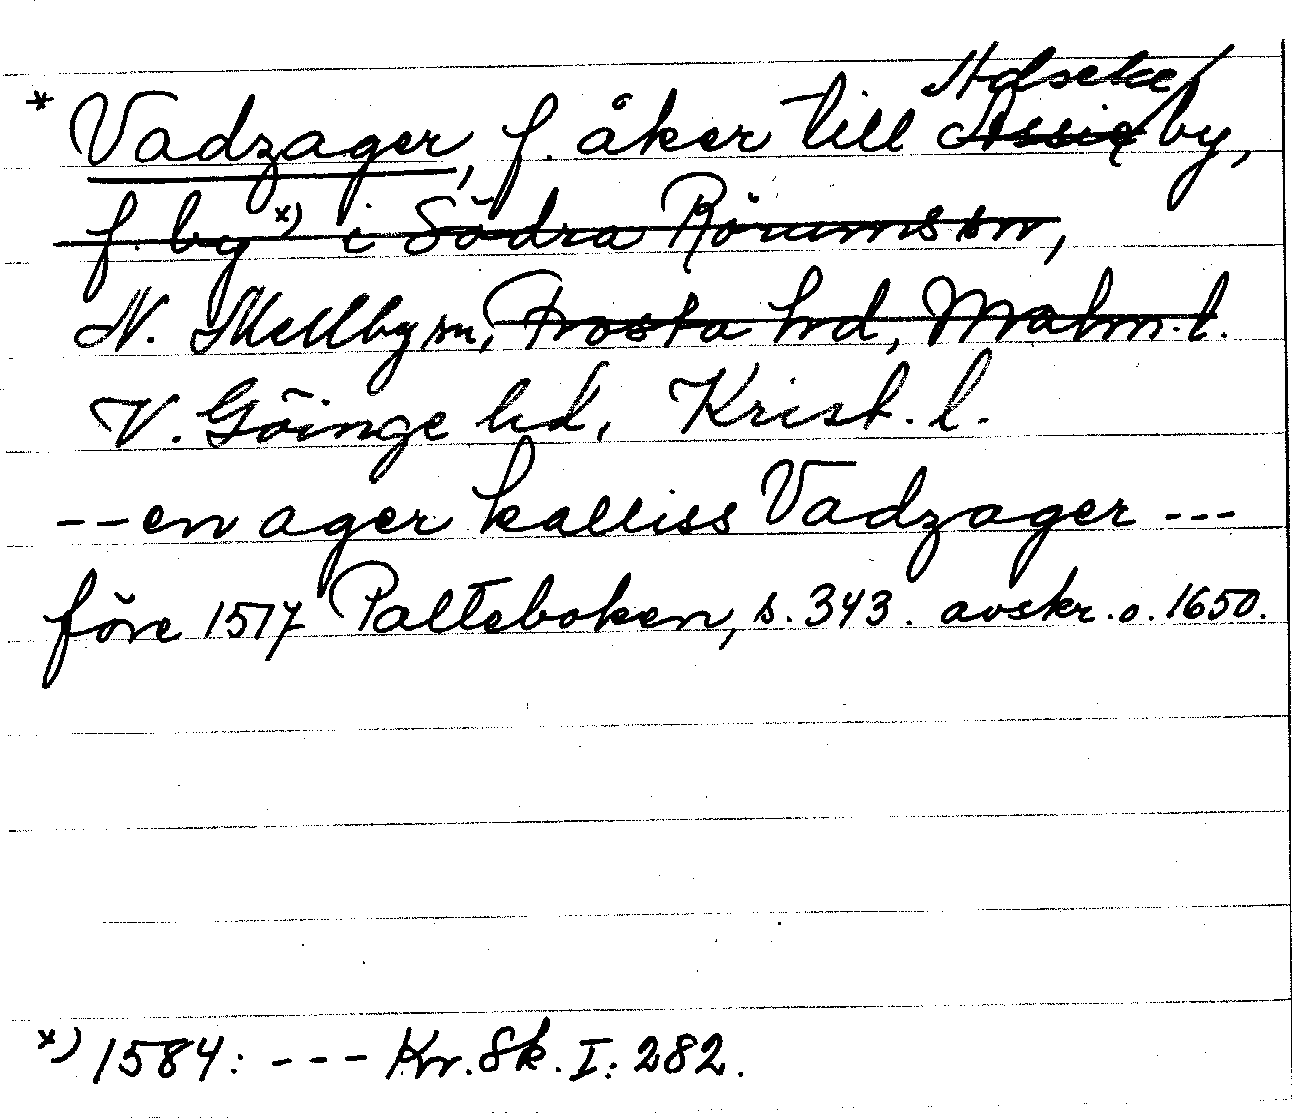 Adseke
* Vadzager, f. åker till Assie by,
f. by x) i Södra Rörums sn,
N. Mellby sn, Frosta hd, Malm. l.
V. Göinge hd, Krist. l.
-- en ager kalliss Vadzager ---
före 1517 Palteboken, s. 343. avskr. o. 1650.
x) 1584: --- Kr. Sk. I: 282.